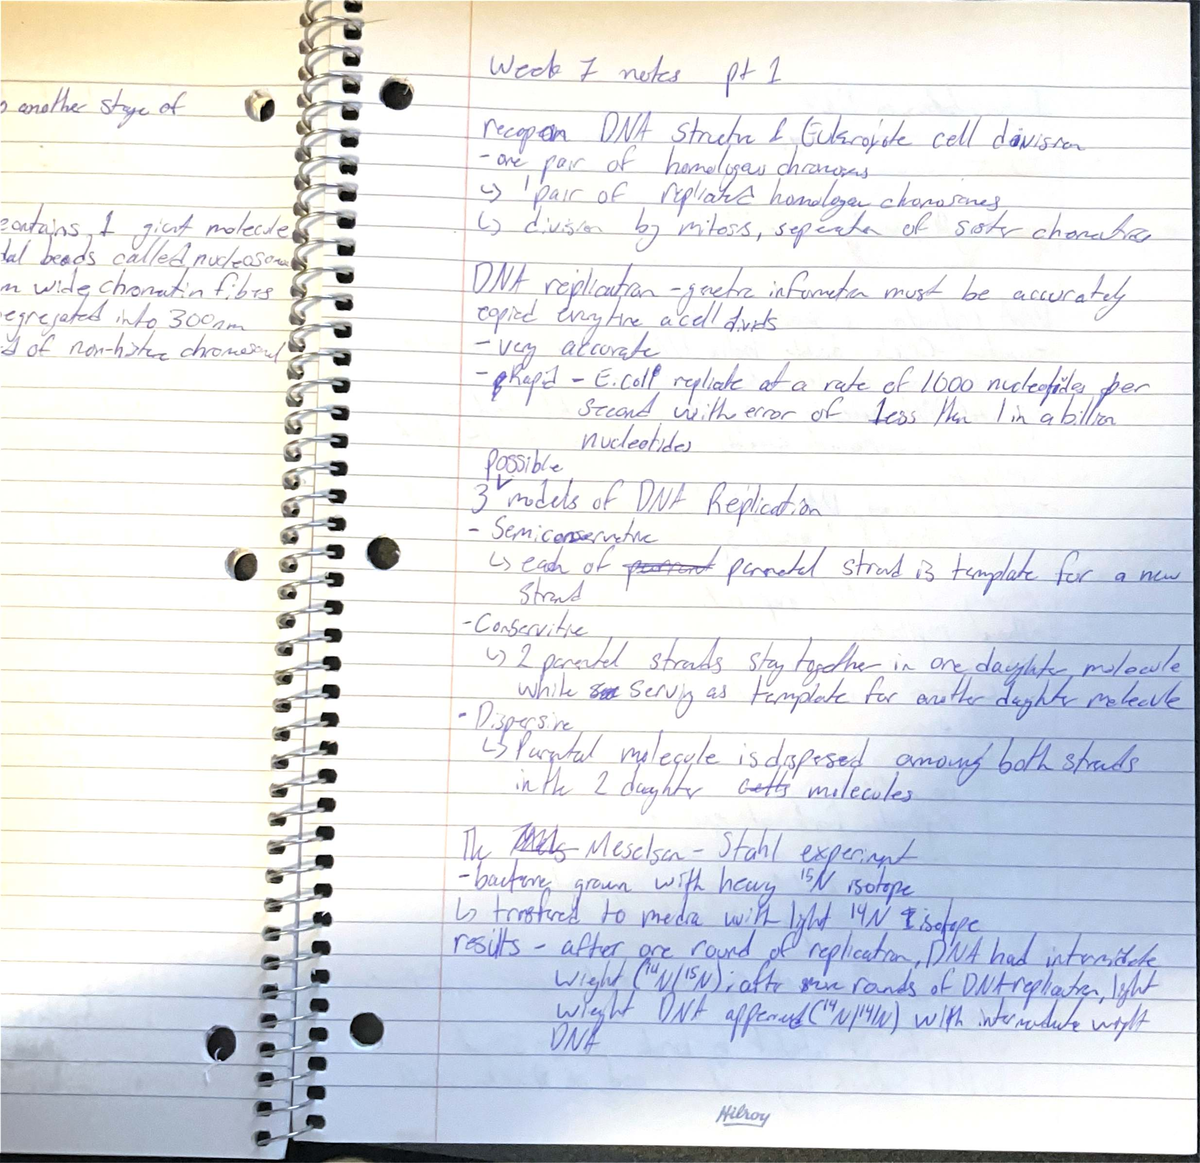 another stage of
contains 1 giant molecule
dal beads called nucleosom
m wide chromatin fibrs
egregated into 300nm
d of non-histne chromosomal
Week 7 notes pt 1
recap on DNA Structr & Eukarojote cell division
- one pair of homologous chromoses
↳ 1 pair of replicated homologou chomosomes
↳ division by mitosis, seperaten of sister chomatids
DNA replication - genetic informaten must be accurately
copied everytime a cell divids
- very accurate
- Rapid - E.coli replicate at a rate of 1000 nucleotides per
second with error of less than 1 in a billion
nucleotides
possible
3 models of DNA Replication
- Semiconservative
↳ each of parrent parnetal strand is template for a new
Strand
- Conservitive
↳ 2 parental strands stay together in one daughter molecule
while serving as template for another daughter molecule
- Dispersive
↳ Parental molecule is dispesed among both strands
in the 2 daughter cells molecules
The Meselson - Stahl experiment
- bacteria grown with heavy ¹⁵N isotope
↳ transfered to media with light ¹⁴N isotope
results - after one round of replication, DNA had intermidate
wieght (¹⁴N/¹⁵N); after rounds of DNA replication, light
wieght DNA appeared (¹⁴N/¹⁴N) with intermediate weight
DNA
Hilroy